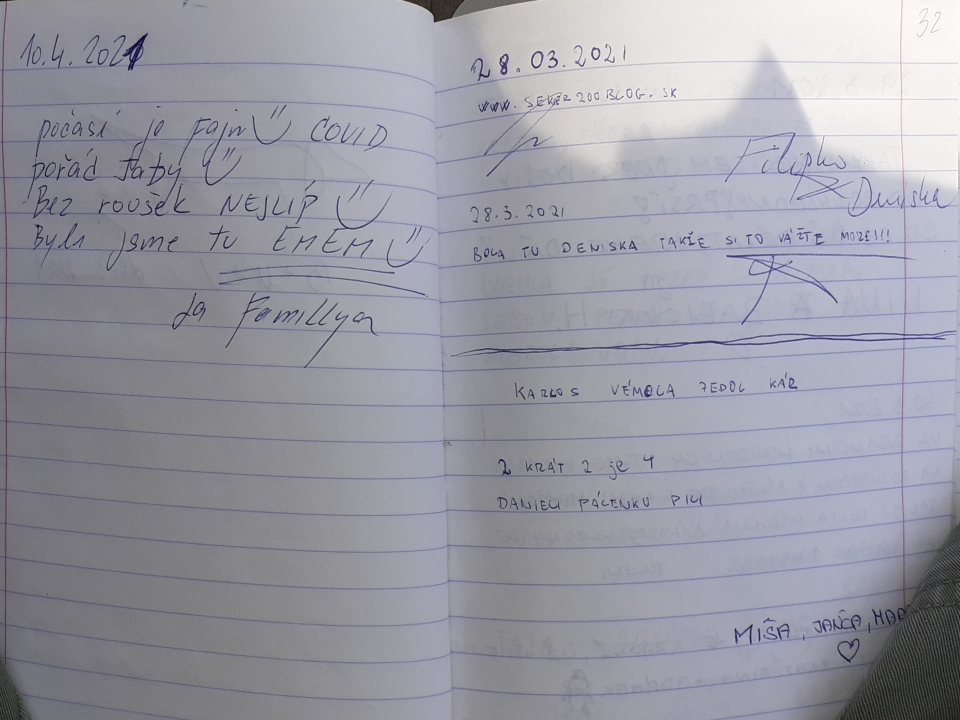 10.4.2021
počasí je Fajn COVID
pořád tady
Bez roušek NEJLÍP
Byli jsme tu EMEM
Ja Famillya
32
28.03.2021
www.SEKER200BLOG.SK
Filipko
Deniska
28.3.2021
BOLA TU DENISKA TAKŽE SI TO VÁŽTE MOZEŠ!!
KARLOS VÉMOLA JEDOL KÁR
2 KRÁT 2 je 4
DANIELI PÁLENKU PILI
MIŠA, JANČA, MAR